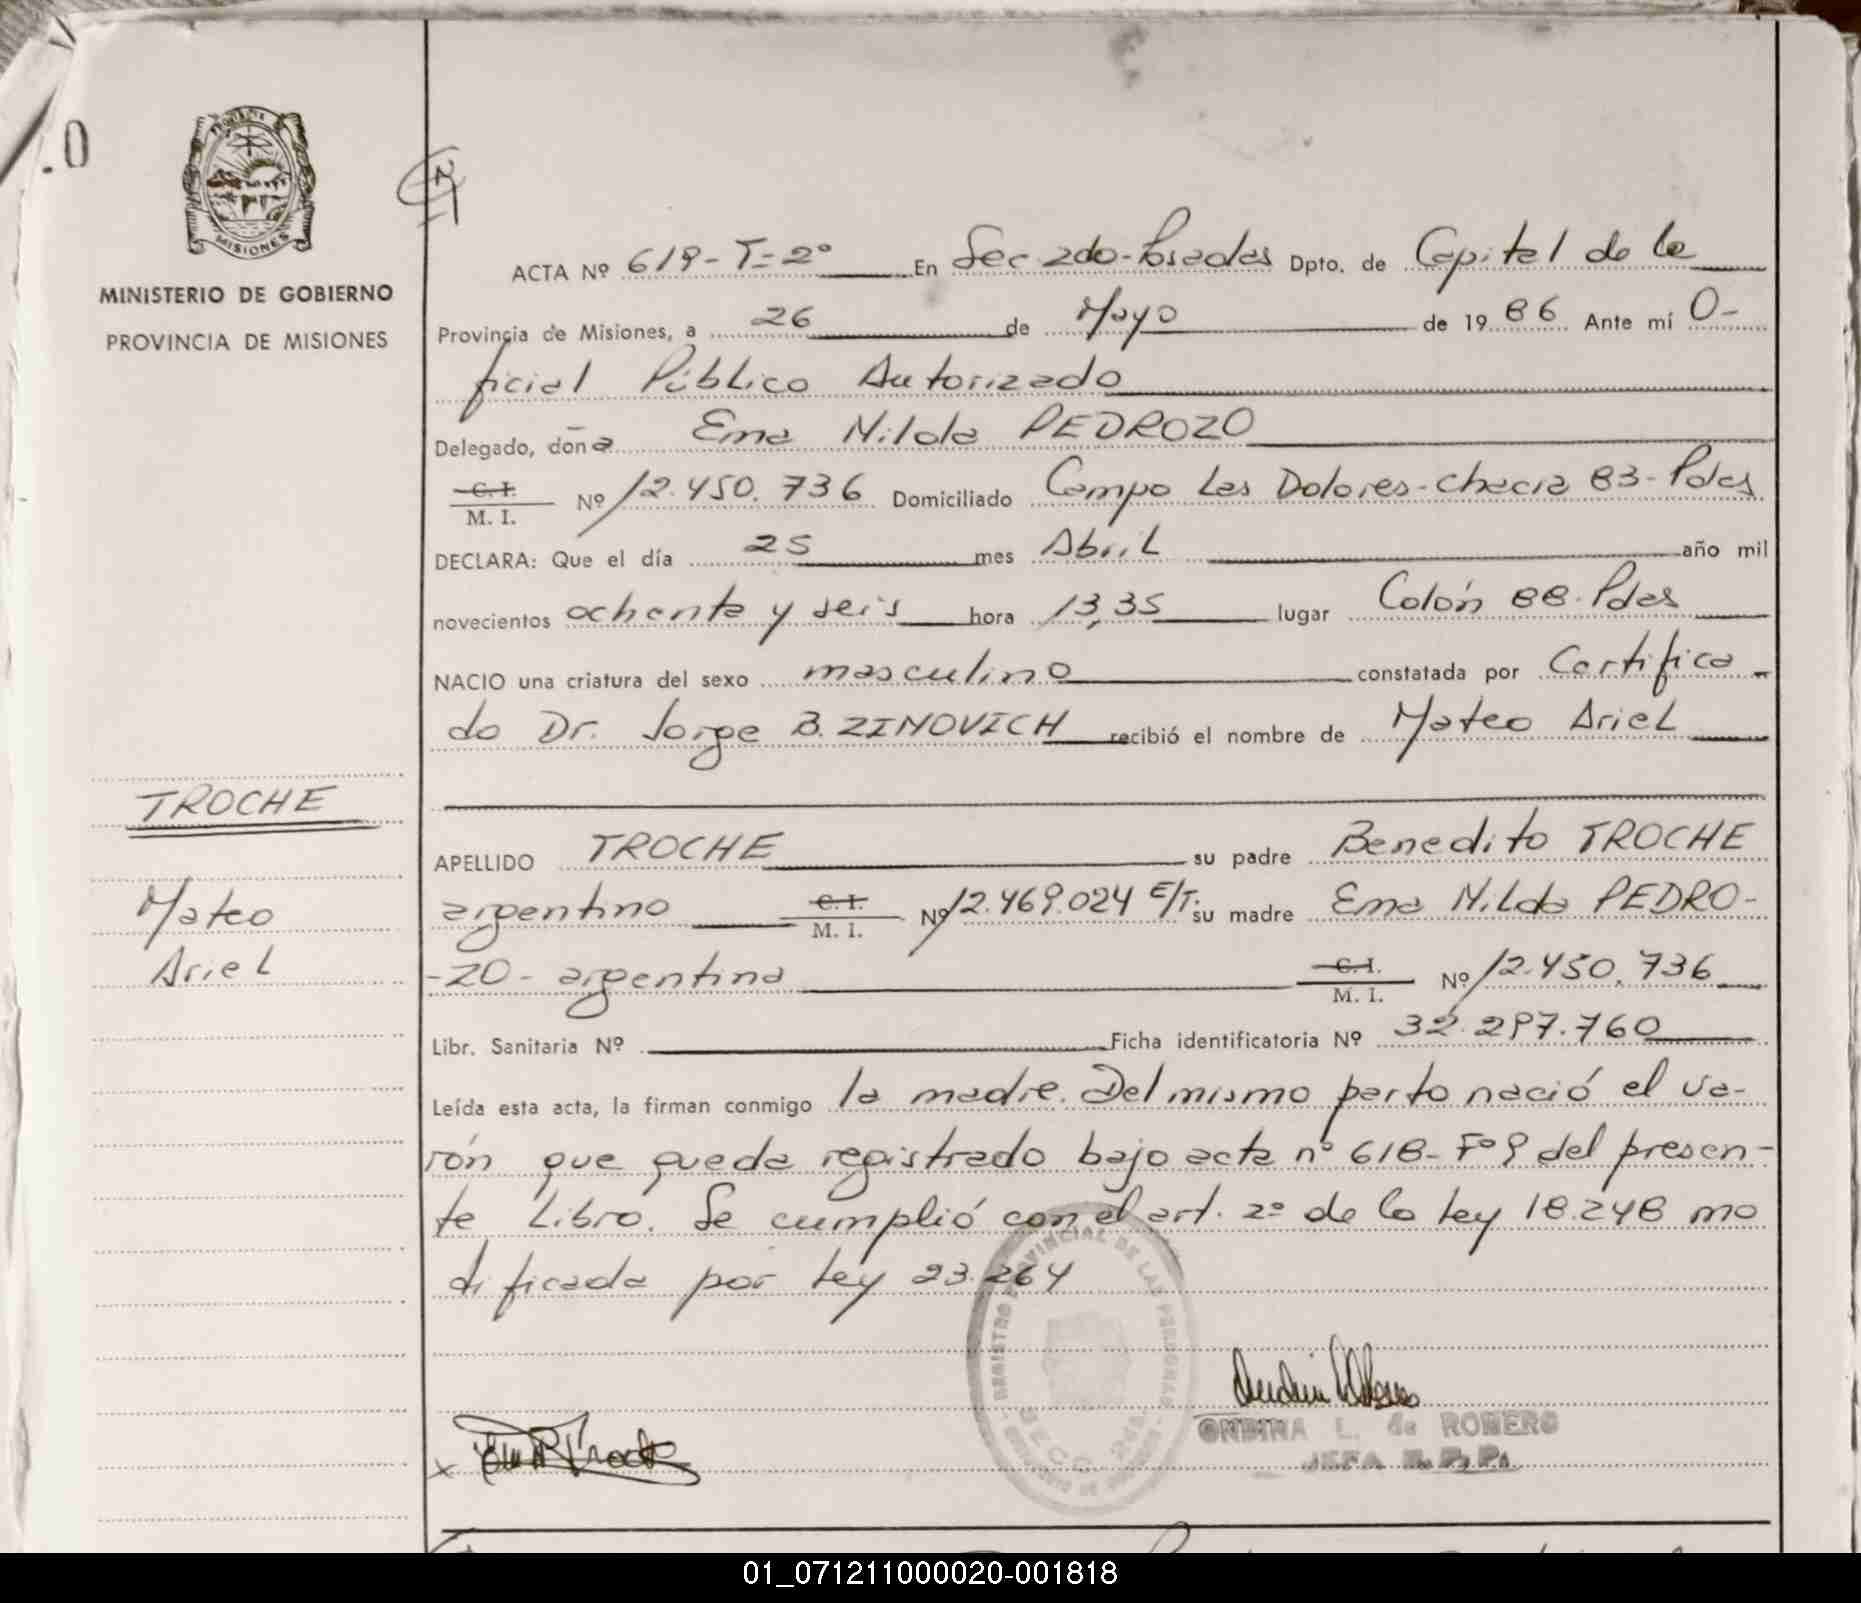 .0
PROVINCIA DE
MISIONES
MINISTERIO DE GOBIERNO
PROVINCIA DE MISIONES
ACTA Nº 619-T=2º En Sec 2do-Posadas Dpto. de Capital de la
Provincia de Misiones, a 26 de Mayo de 1986 Ante mí O-
ficial Público Autorizado
Delegado, doña Ema Nilda PEDROZO
C.I.
M. I. Nº 12.450.736 Domiciliado Campo Las Dolores-chacra 83-Pdas
DECLARA: Que el día 25 mes Abril año mil
novecientos ochenta y seis hora 13,35 lugar Colón 88-Pdas
NACIO una criatura del sexo masculino constatada por Certifica-
do Dr. Jorge B. ZINOVICH recibió el nombre de Mateo Ariel
TROCHE
Mateo
Ariel
APELLIDO TROCHE su padre Benedito TROCHE
argentino C.I.
M. I. Nº 12.469.024 E/T. su madre Ema Nilda PEDRO-
-ZO- argentina C.I.
M. I. Nº 12.450.736
Libr. Sanitaria Nº Ficha identificatoria Nº 32.297.760
Leída esta acta, la firman conmigo la madre. Del mismo parto nació el va-
rón que queda registrado bajo acta nº 618-Fº9 del presen-
te Libro. Se cumplió con el art. 2º de la ley 18.248 mo
dificada por ley 23.264
REGISTRO PROVINCIAL DE LAS PERSONAS
SECC. 2da.
ONDINA L. de ROMERO
JEFA R. P. P.
x
01_071211000020-001818